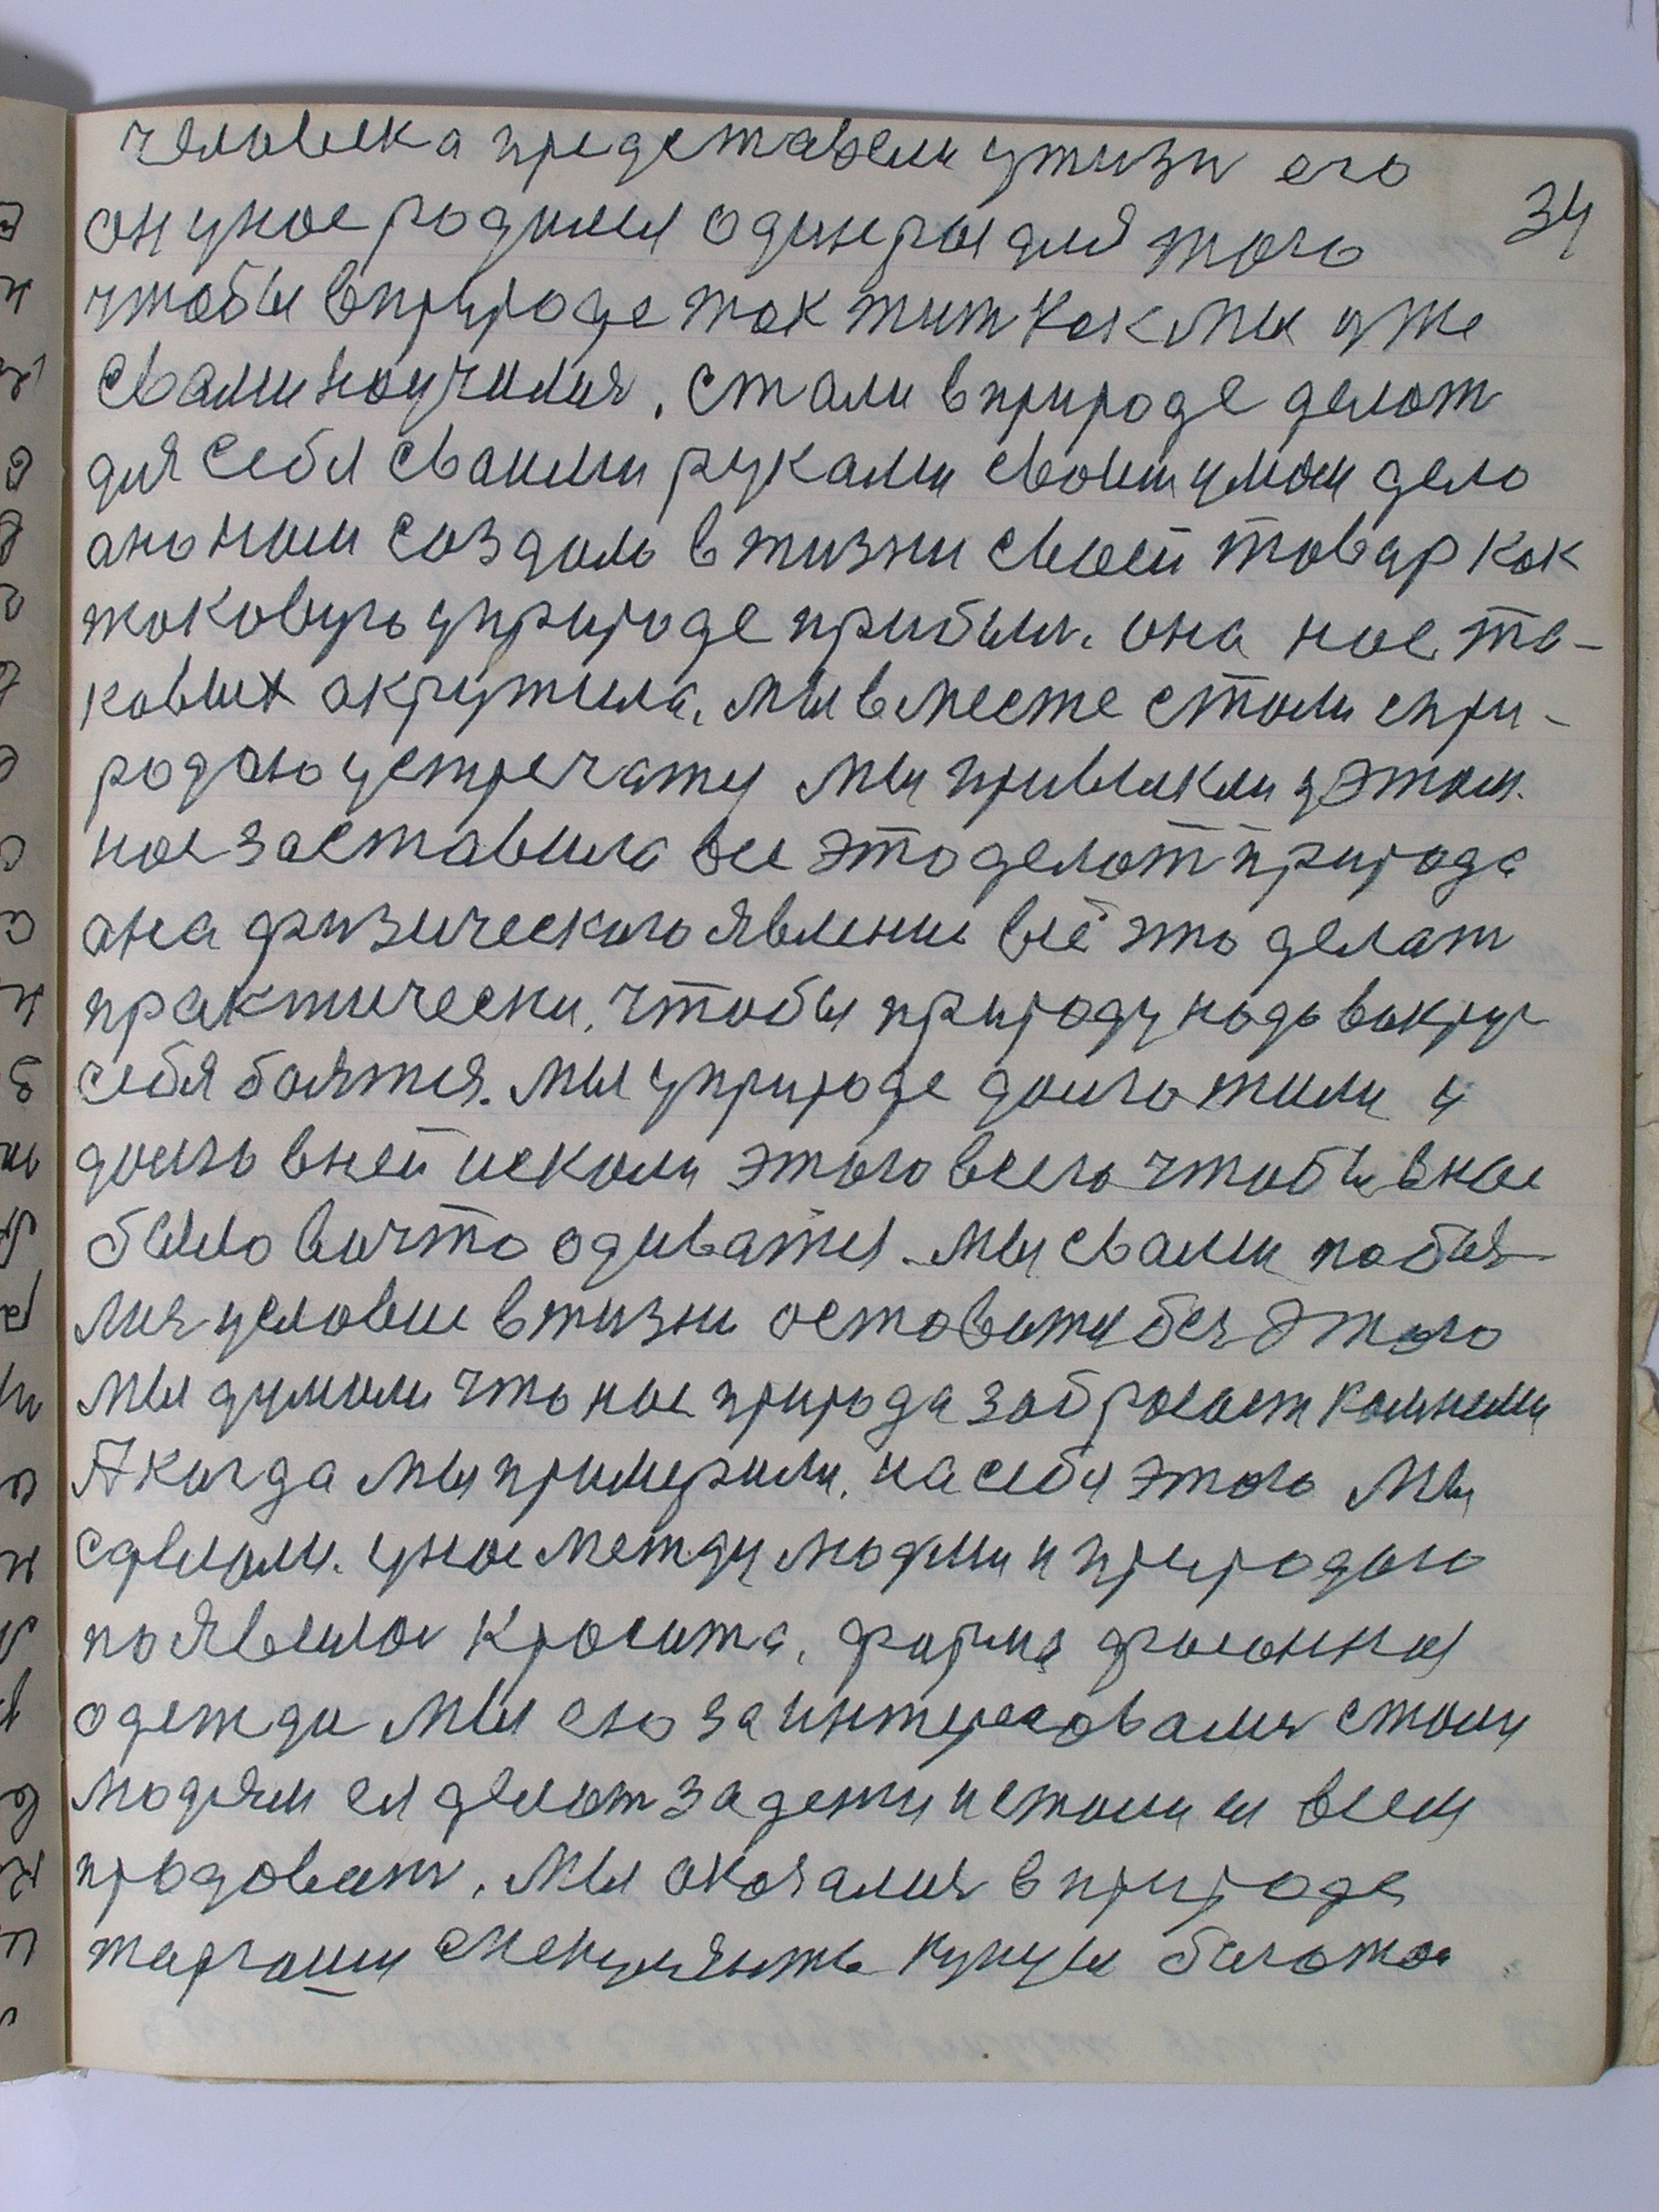 человека представели ужизн его
34
он унас родился одинраз для того
чтобы вприроде так жит как мы уже
свами научился. стали вприроде делат
для себя сваими руками своим умом дело
ано нам создало в жизни своей товар как
таковую уприроде прибыл. она нас та-
ковых акружила. мы вместе стали спри-
родаю устречатся мы привыкли уэтом.
нас заставила все это делат природа
она физического явление всё это делат
практически, чтобы природу надо вакруг
себя баятся. мы уприроде долго жили и
долго вней искали этого всего чтобы внас
было вичто одиватся. мы свами побая
лися условие вжизни оставатся без этого
мы думали что нас природа забросает камнями
А когда мы примерили, на себя этого мы
сделали. унас между людми и природаю
появилас красата. форма фасонная
одежда мы ею заинтересовались стали
людям ея делат за денги истали ея всем
продават, мы аказались вприроде
таргаши спекулянты купцы багатая